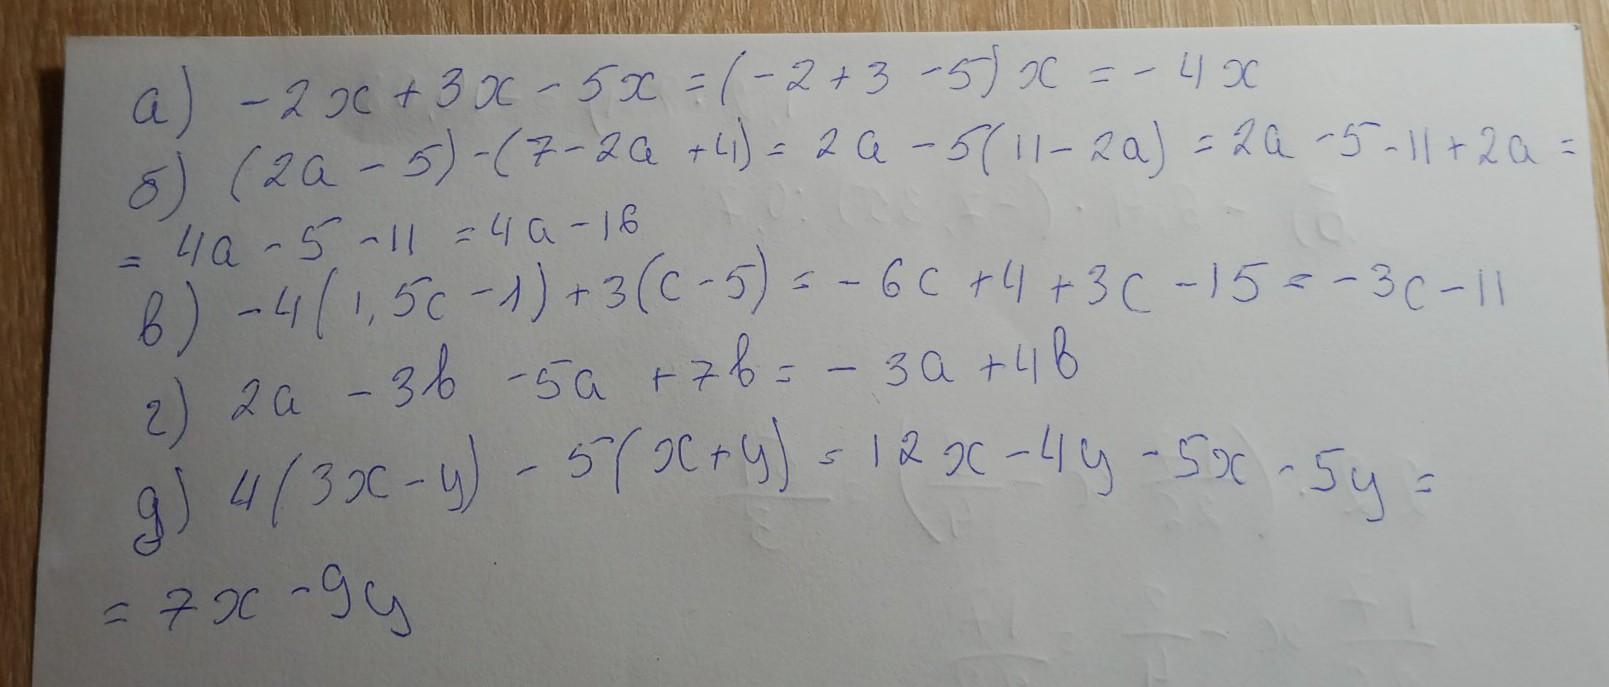 а) -2x + 3x - 5x = (-2 + 3 - 5)x = - 4x
б) (2a - 5) - (7 - 2a + 4) = 2a - 5(11 - 2a) = 2a - 5 - 11 + 2a =
= 4a - 5 - 11 = 4a - 16
в) -4(1,5c - 1) + 3(c - 5) = - 6c + 4 + 3c - 15 = - 3c - 11
г) 2a - 3b - 5a + 7b = - 3a + 4b
д) 4(3x - y) - 5(x + y) = 12x - 4y - 5x - 5y =
= 7x - 9y